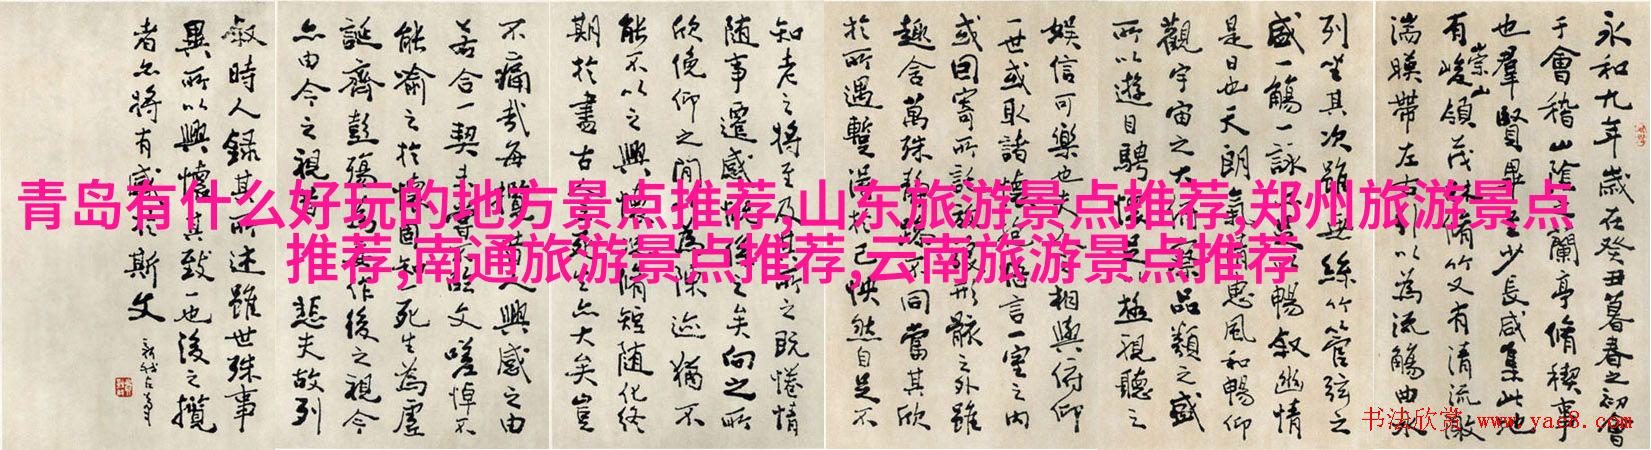 青岛有什么好玩的地方景点推荐,山东旅游景点推荐,郑州旅游景点
推荐,南通旅游景点推荐,云南旅游景点推荐
永和九年歲在癸丑暮春之初會
于會稽山陰之蘭亭脩稧事
也羣賢畢至少長咸集此地
有崇山峻領茂林脩竹又有清流激
湍暎帶左右引以為流觴曲水
列坐其次雖無絲竹管弦之
盛一觴一詠亦足以暢敘幽情
是日也天朗氣清惠風和暢仰
觀宇宙之大俯察品類之盛
所以遊目騁懷足以極視聽之
娛信可樂也夫人之相與俯仰
一世或取諸懷抱悟言一室之內
或因寄所託放浪形骸之外雖
趣舍萬殊靜躁不同當其欣
於所遇暫得於己怏然自足不
知老之將至及其所之既惓情
隨事遷感慨係之矣向之所
欣俛仰之間以為陳迹猶不
能不以之興懷況脩短隨化終
期於盡古人云死生亦大矣豈
不痛哉每攬昔人興感之由
若合一契未嘗不臨文嗟悼不
能喻之於懷固知一死生為虛
誕齊彭殤為妄作後之視今
亦由今之視昔悲夫故列
敘時人錄其所述雖世殊事
異所以興懷其致一也後之攬
者亦將有感於斯文
书法欣赏 www.yac8.com